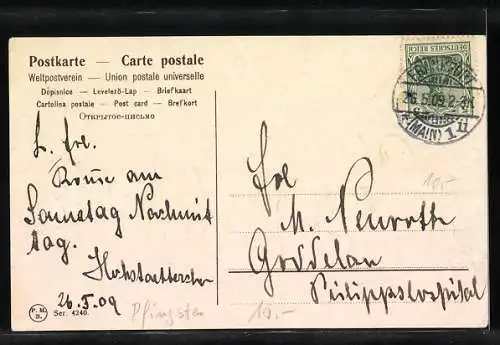 Postkarte — Carte postale
Weltpostverein — Union postale universelle
Dopisnice — Levelező-Lap — Briefkaart
Cartolina postale — Post card — Brefkort
Открытое-письмо
L. Frl.
Komme am
Sonntag Nachmit
tag.
26.5.09
Pfingsten
P. M.
B.
Ser. 4240.
DEUTSCHES REICH
FRANKFURT
26.5.09. 2-3N
* (MAIN) 1
Frl.
M. Neuroth
Goddelau
Philippshospital
10.-
10.-